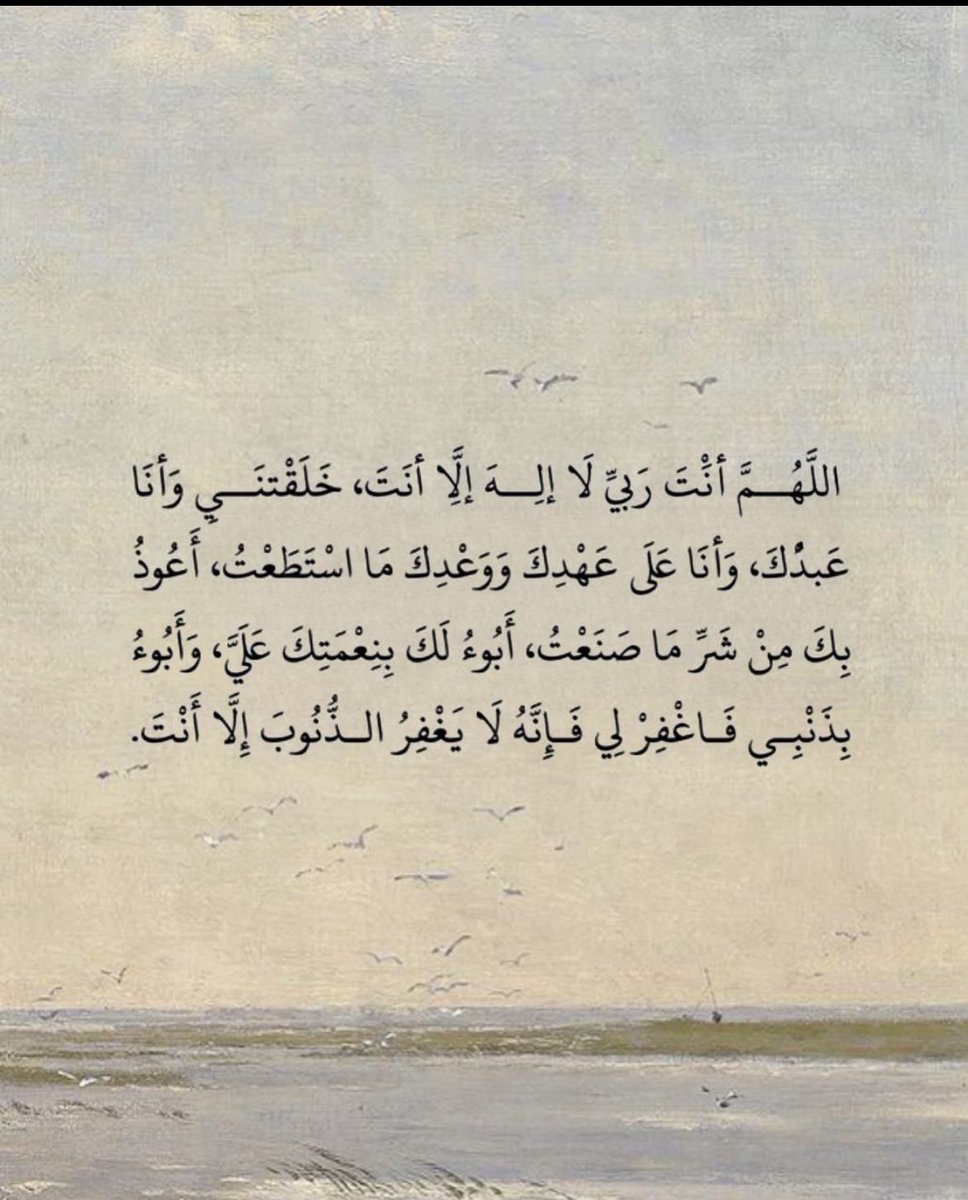 اللَّهُـــمَّ أنْتَ رَبِيِّ لَا إلِــــهَ إلَِّا أنتَ، خَلَقْتنَـــيِ وَأنَا
عَبدُكَ، وَأنَا عَلَى عَهْدِكَ وَوَعْدِكَ مَا اسْتَطَعْتُ، أَعُوذُ
بِكَ مِنْ شَرِّ مَا صَنَعْتُ، أَبُوءُ لَكَ بِنِعْمَتِكَ عَلَيَّ، وَأَبُوءُ
بِذَنْبِـــي فَــاغْفِرْ لِي فَــإِنَّهُ لَا يَغْفِرُ الــذُّنُوبَ إِلَّا أَنْتَ.